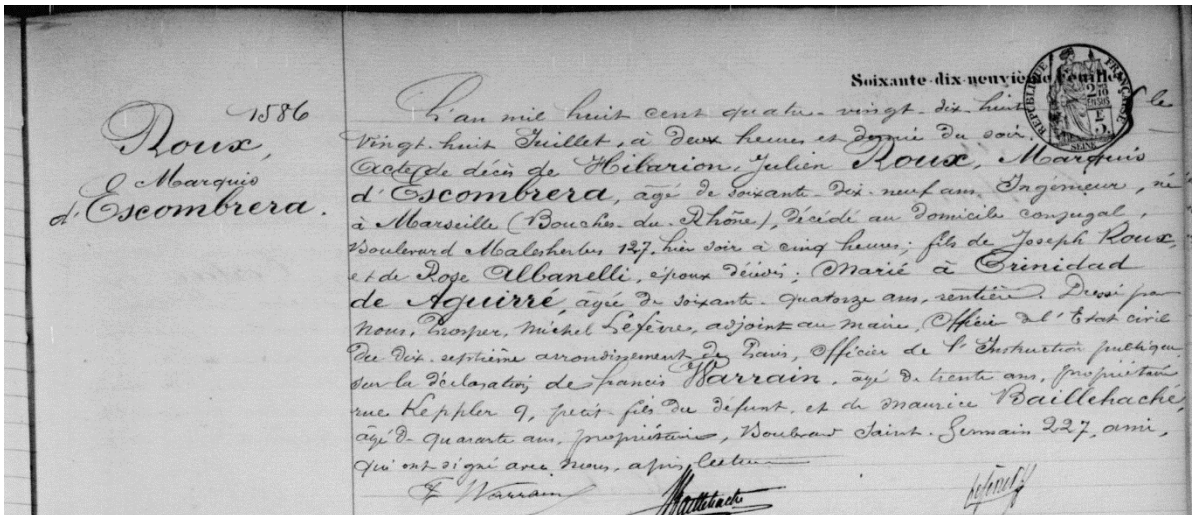 Soixante-dix-neuvième Feuillet
RÉPUBLIQUE FRANÇAISE
SEINE
1586
Roux,
Marquis
d'Escombrera.
L'an mil huit cent quatre-vingt-dix huit le
vingt-huit Juillet, à deux heures et demie du soir.
Acte de décès de Hilarion, Julien Roux, Marquis
d'Escombrera, âgé de soixante-dix-neuf ans, Ingénieur, né
à Marseille (Bouches-du-Rhône), décédé au domicile conjugal,
Boulevard Malesherbes 127, hier soir à cinq heures; fils de Joseph Roux,
et de Rose Albanelli, époux décédés; Marié à Trinidad
de Aguirré, âgée de soixante-quatorze ans, rentière. Dressé par
Nous, Prosper, Michel Lefèvre, adjoint au maire, Officier de l'Etat civil
du dix-septième arrondissement de Paris, Officier de l'Instruction publique
sur la déclaration de francis Warrain, âgé de trente ans, propriétaire
rue Keppler 9, petit-fils du défunt, et de Maurice Baillehaché,
âgé de quarante ans, propriétaire, Boulevard Saint-Germain 227, ami,
qui ont signé avec nous, après lecture
F Warrain Baillehache